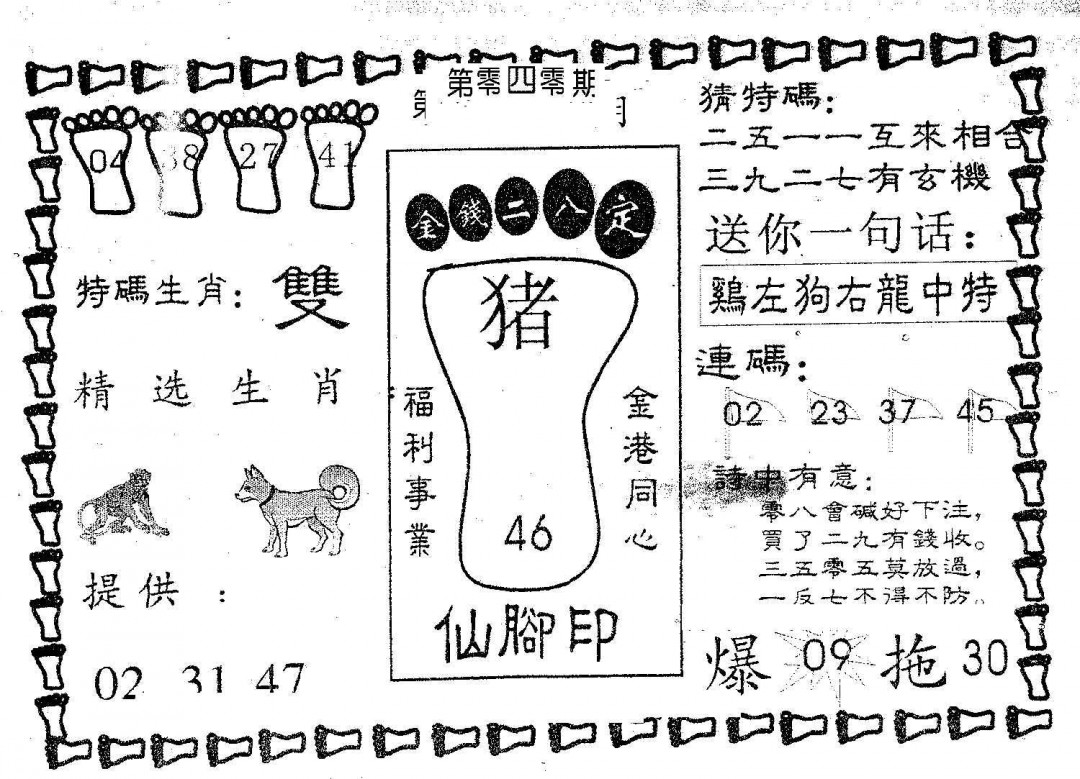 第零四零期
第
04 38 27 41
特碼生肖：雙
精选生肖
提供：
02 31 47
金錢二八定
猪
福利事業
金港同心
46
仙腳印
猜特碼：
二五一一互來相合
三九二七有玄機
送你一句话：
鷄左狗右龍中特
連碼：
02 23 37 45
詩中有意：
零八會碱好下注，
買了二九有錢收。
三五零五莫放過，
一反七不得不防。
爆 09 拖 30